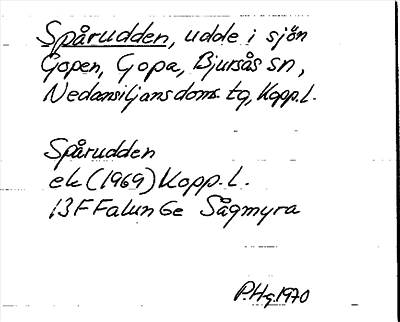 Spårudden, udde i sjön
Gopen, Gopa, Bjursås sn,
Nedansiljans doms. tg, Kopp.l.
Spårudden
ek (1969) Kopp. l.
13F Falun 6e Sågmyra
P.Hg. 1970